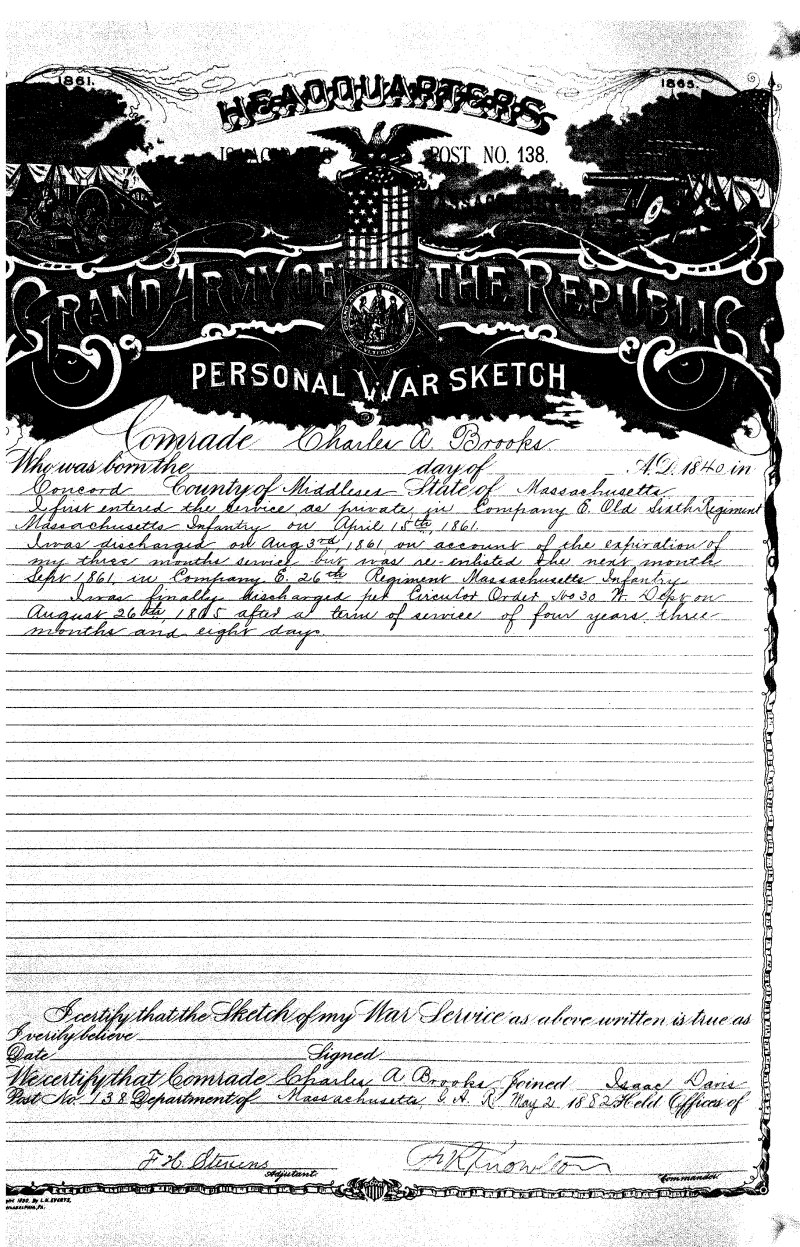 1861.
1865.
HEADQUARTERS
POST NO. 138.
GRAND ARMY OF THE REPUBLIC
PERSONAL WAR SKETCH
Comrade Charles A Brooks.
Who was born the day of A.D. 1840 in
Concord County of Middlesex State of Massachusetts
I first entered the service as private in Company E. Old Sixth Regiment
Massachusetts Infantry on April 15th, 1861.
I was discharged on Aug 3rd, 1861, on account of the expiration of
my three months service but was re-enlisted the next month
Sept 1861, in Company E. 26th Regiment Massachusetts Infantry
I was finally discharged per Circular Order No 30 W. Dept on
August 26th, 1865 after a term of service of four years three
months and eight days.
I certify that the Sketch of my War Service as above written is true as
I verily believe
Date Signed
We certify that Comrade Charles A Brooks Joined Isaac Davis
Post No. 138 Department of Massachusetts, G. A. R. May 2 1882 Held Offices of
F H Stevens
Adjutant. Commander